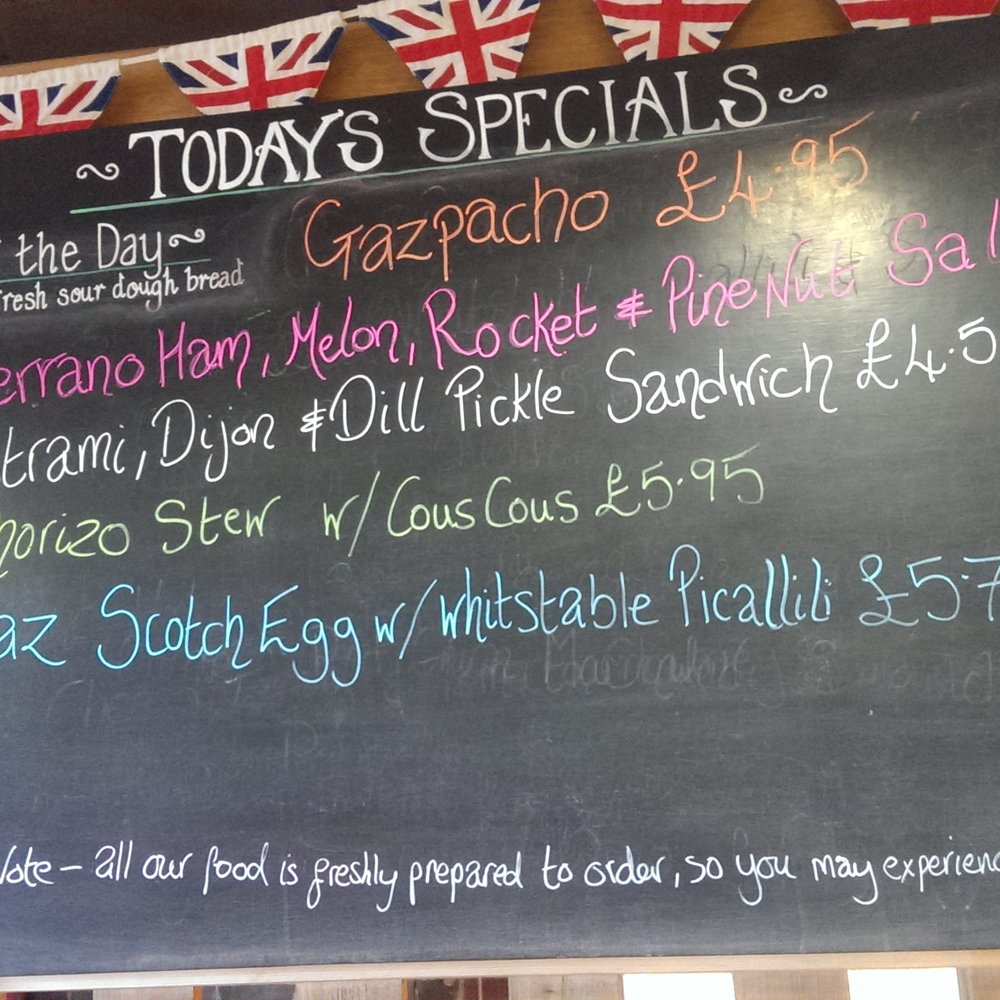 ~ TODAY'S SPECIALS ~
the Day ~
Gazpacho £4.95
fresh sour dough bread
errano Ham, Melon, Rocket & Pine Nut Sal
trami, Dijon & Dill Pickle Sandwich £4.5
horizo Stew w/ CousCous £5.95
az Scotch Egg w/ Whitstable Picallili £5.7
Note - all our food is freshly prepared to order, so you may experienc